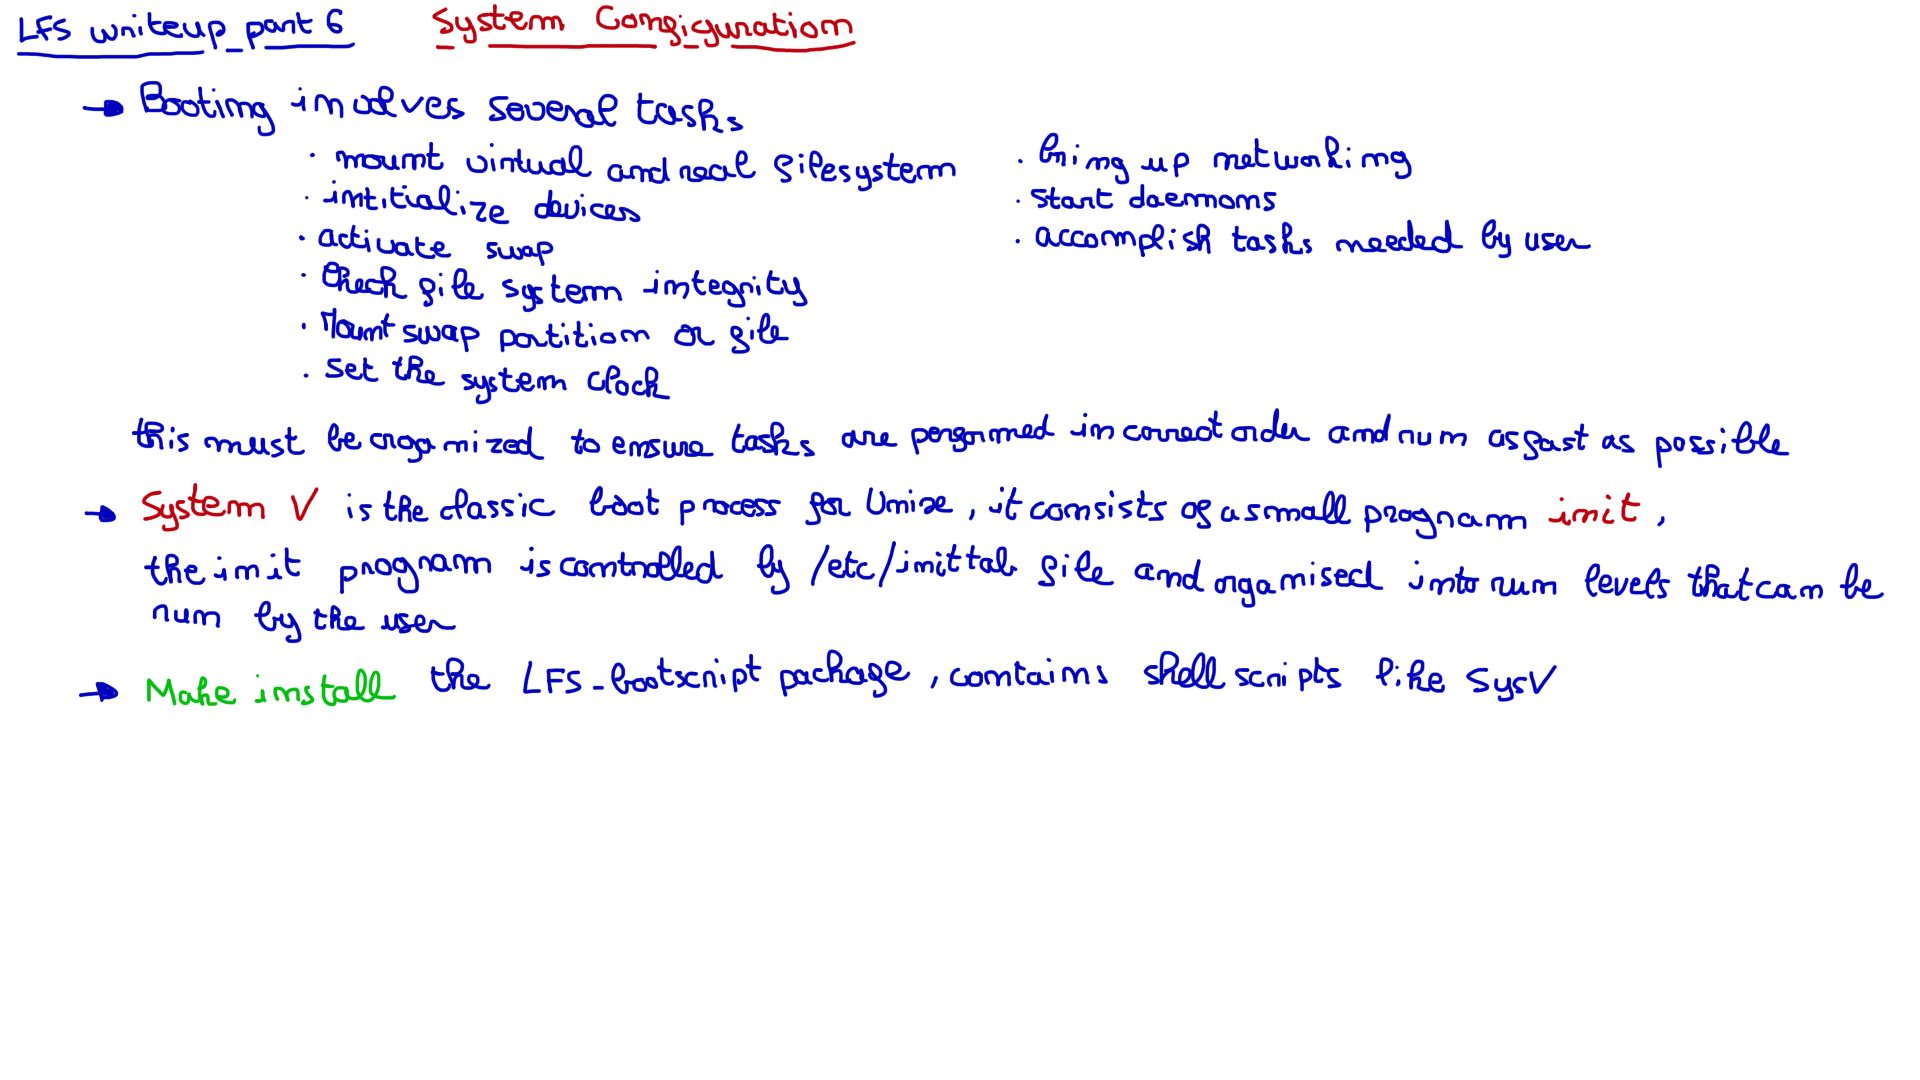 LFS writeup part 6 System Configuration
→ Booting involves several tasks
· mount virtual and real filesystem
· intitialize devices
· activate swap
· Check file system integrity
· Mount swap partition or file
· set the system clock
· bring up networking
· start daemons
· accomplish tasks needed by user
this must be organized to ensure tasks are performed in correct order and run as fast as possible
→ System V is the classic boot process for Unix, it consists of a small program init,
the init program is controlled by /etc/inittab file and organised into run levels that can be
run by the user
→ Make install the LFS-bootscript package, contains shell scripts like SysV